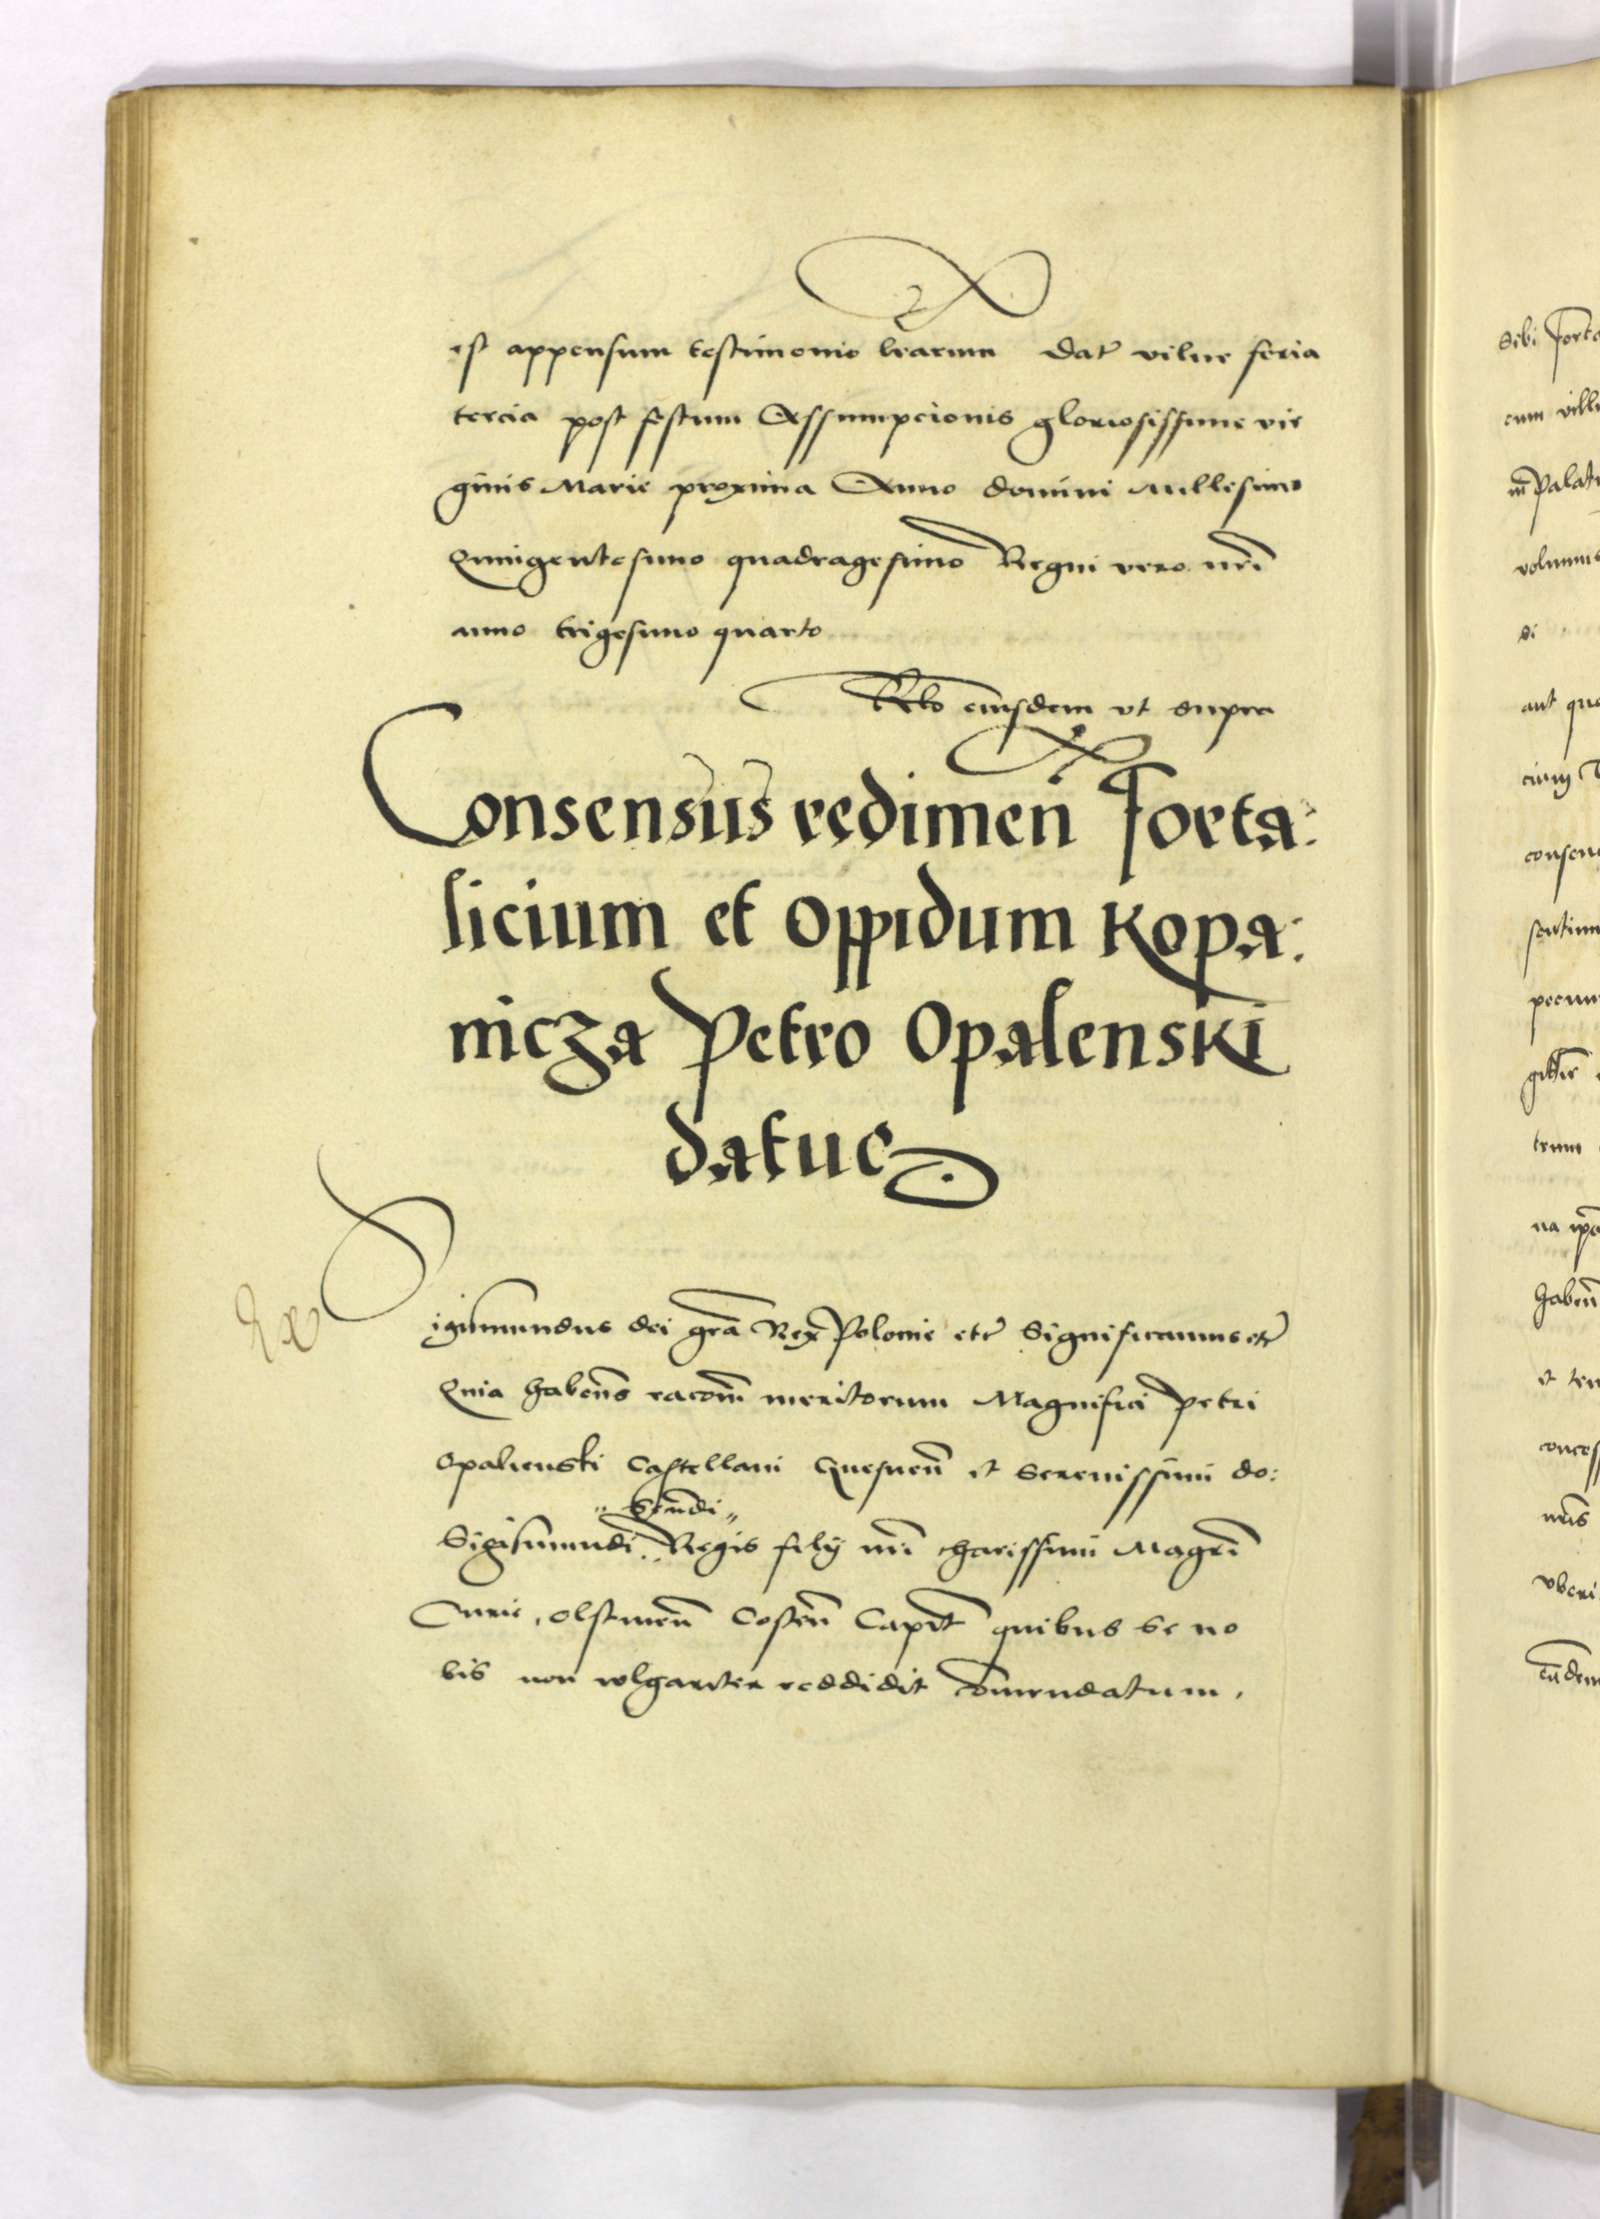 est appensum testimonio lrarum Dat vilne feria
tercia post festum Assumpcionis gloriosissime vir
ginis Marie proxima Anno domini Millesimo
Quingentesimo quadragesimo Regni vero nri
anno trigesimo quarto
Rlo eiusdem vt supra
Consensus redimen forta:
licium et Oppidum Kopa:
nicza Petro Opalenski
datur
Sigismundus dei gra Rex Polonie etc Significamus etc
Quia habens racom meritorum Magnifici Petri
Opalienski Castellani Gnesnen et Serenissimi do:
secundi
Sigismundi Regis filij nri charissimi Magri
Curie, Olstinen Costen Capit quibus se no
bis non wlgariter reddidit comendatum,
Sibi forta
cum vill
Palat
volumus
di
aut quo
consen
sentim
pecun
trum
na
haben
et ten
conces
nris
vberi
eudem